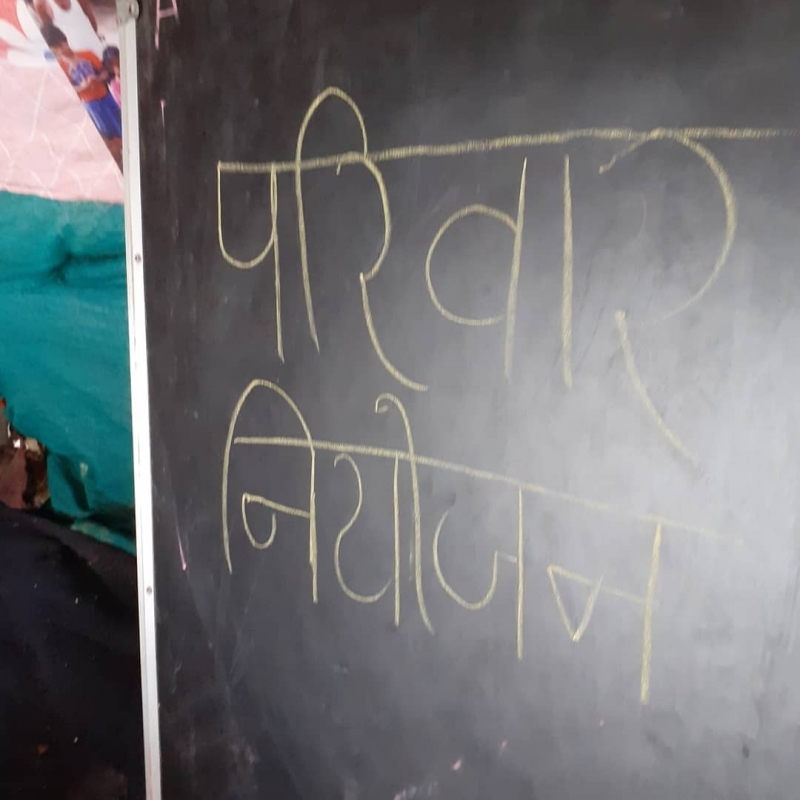 परिवार
नियोजन